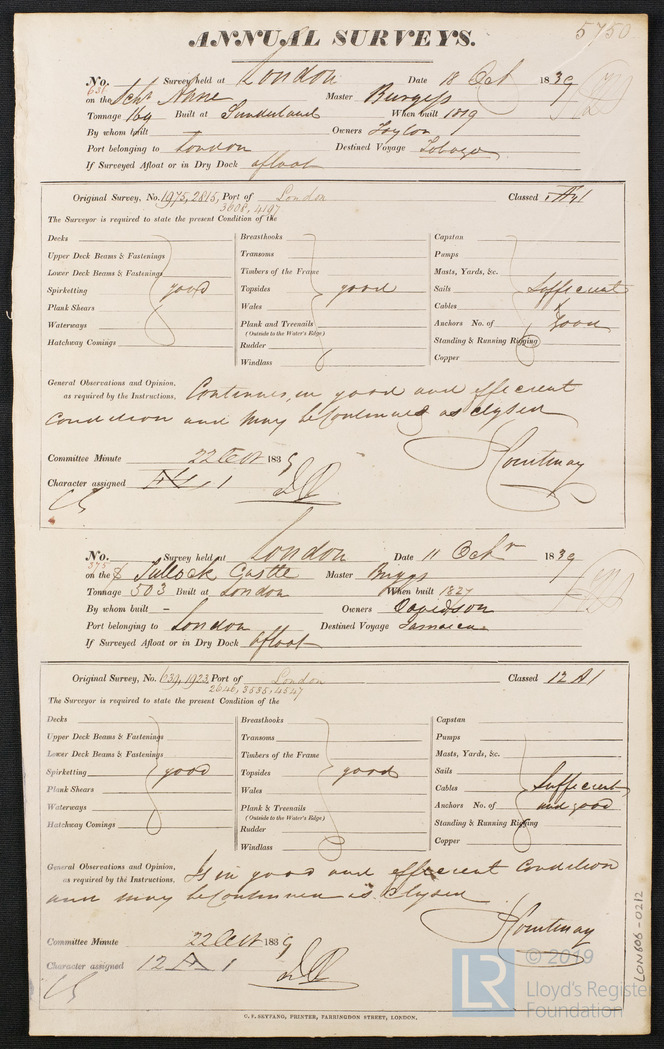 5750
ANNUAL SURVEYS.
No. Survey held at London Date 18 Oct 1839
631
on the Schr Anne Master Burgess
Tonnage 164 Built at Sunderland When built 1819
By whom built Owners Taylor
Port belonging to London Destined Voyage Tobago
If Surveyed Afloat or in Dry Dock afloat
Original Survey, No. 1975, 2815, Port of London Classed Æ 1
3608, 4197
The Surveyor is required to state the present Condition of the
Decks Breasthooks Capstan
Upper Deck Beams & Fastenings Transoms Pumps
Lower Deck Beams & Fastenings Timbers of the Frame Masts, Yards, &c.
Spirketting good Topsides good Sails Sufficient
Plank Shears Wales Cables &
Waterways Plank and Treenails Anchors No. of Good
(Outside to the Water's Edge)
Hatchway Comings Rudder Standing & Running Rigging
Windlass Copper
General Observations and Opinion, Continues in good and efficient
as required by the Instructions,
condition and may be Continued as classed
Courtenay
Committee Minute 22 Oct 1839
Character assigned Æ 1
No. Survey held at London Date 11 Octr 1839
375
on the S Tullock Castle Master Briggs
Tonnage 503 Built at London When built 1827
By whom built - Owners Davidson
Port belonging to London Destined Voyage Jamaica
If Surveyed Afloat or in Dry Dock afloat
Original Survey, No. 639, 1923, Port of London Classed 12 A 1
2646, 3535, 4547
The Surveyor is required to state the present Condition of the
Decks Breasthooks Capstan
Upper Deck Beams & Fastenings Transoms Pumps
Lower Deck Beams & Fastenings Timbers of the Frame Masts, Yards, &c.
Spirketting good Topsides good Sails
Plank Shears Wales Cables Sufficient
Waterways Plank & Treenails Anchors No. of and good
(Outside to the Water's Edge)
Hatchway Comings Rudder Standing & Running Rigging
Windlass Copper
General Observations and Opinion, Is in good and efficient Condition
as required by the Instructions,
and may be Continued as Classed
Courtenay
Committee Minute 22 Oct 1839
Character assigned 12 A 1
C. F. SEYFANG, PRINTER, FARRINGDON STREET, LONDON.
LON606-0212
LR
© 2019
Lloyd's Register
Foundation